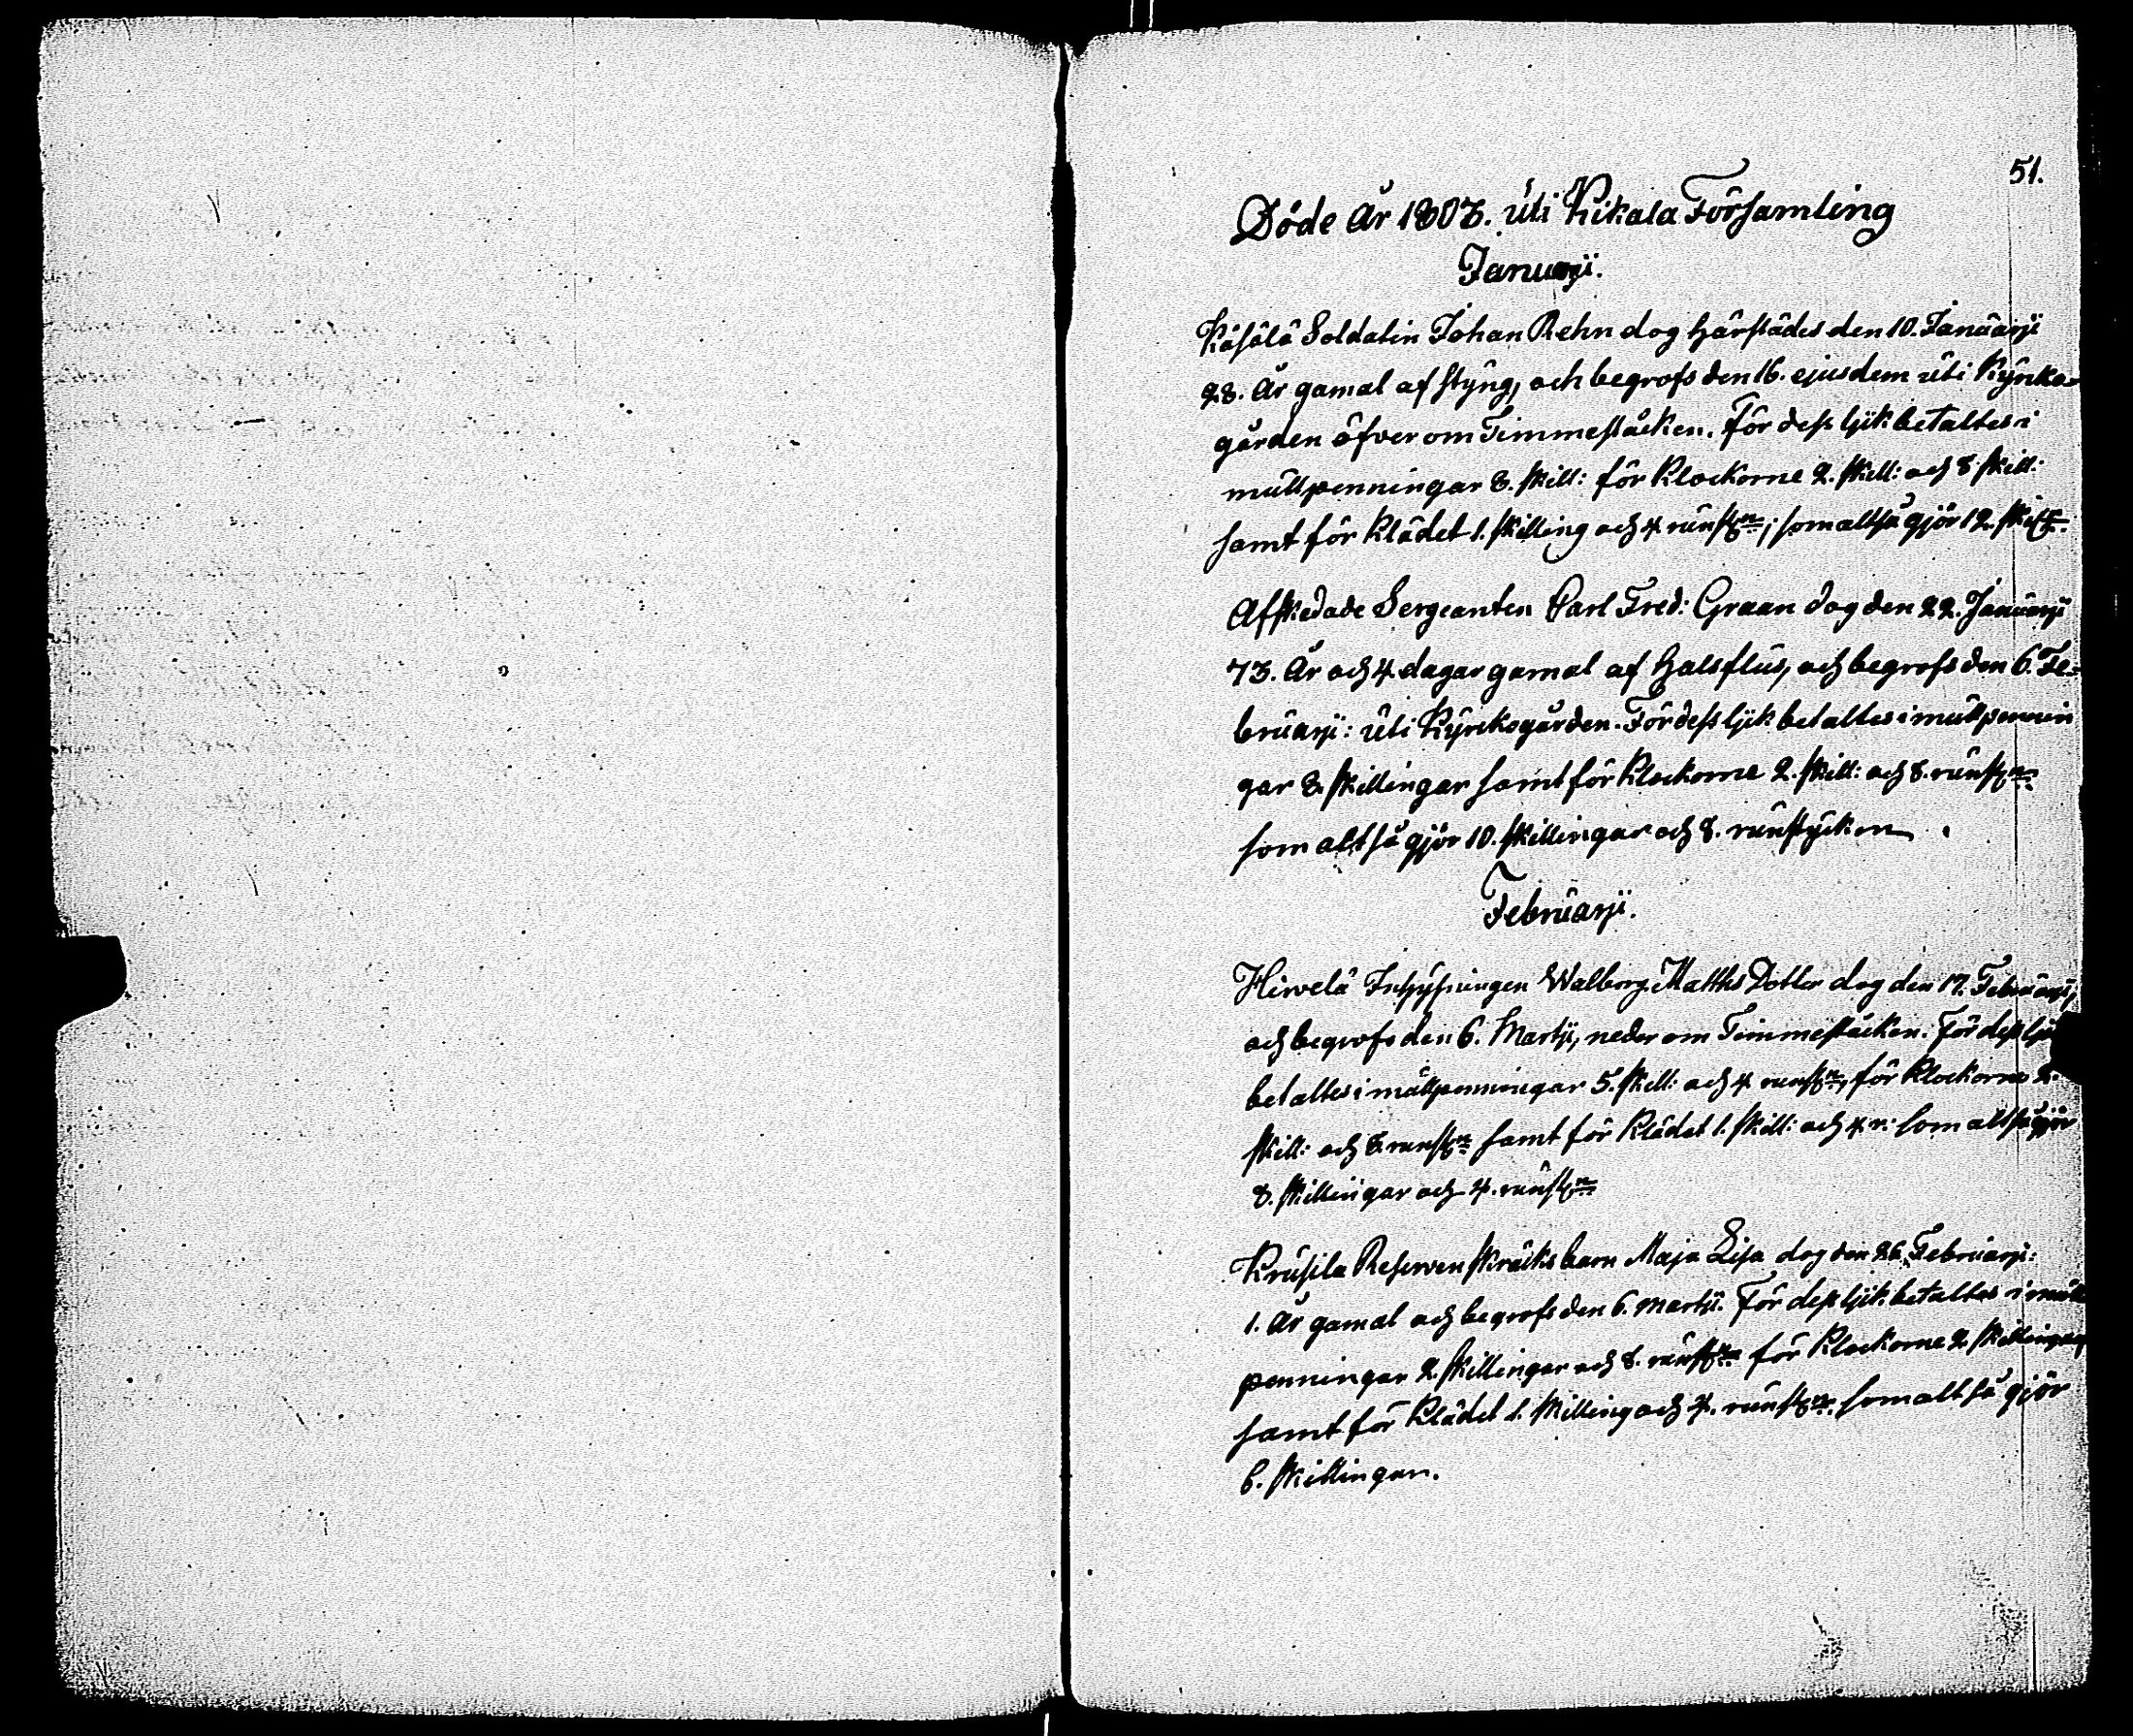 51.
Döde År 1803. uti Kikala Församling
Januarji.
Kåsälä Soldaten Johan Rehn dog härstädes den 10. Januarji
28. År gamal af styng, och begrofs den 16. ejusdem uti Kyrko-
gården öfver om Timmestäcken. För dess lijk betaltes i
mullpenningar 8. skill: för Klockorne 2. skill: och 8 skill:
samt för Klädet 1. skilling och 4 runstn; som altså gjör 12.
Afskedade Sergeanten Carl Fred: Graan dog den 22. Januarji
73. År och 4. dagar gamal af halsflus, och begrofs den 6. Fe-
bruarji: uti Kyrckogården. För dess lijk betaltes i mullpennin
gar 8. skillingar samt för Klockorne 2. skill: och 8. runstn
som altså gjör 10. skillingar och 8. runstycken.
Februarji.
Hirvelä Inhysningen Walborg Matths Dotter dog den 17. Februarji,
och begrofs den 6. Martji, neder om Timmestäcken. För dess
betaltes i mullpenningar 5. skill: och 4 runstn, för Klockorne 2.
skill: och 8. runstn samt för Klädet 1. skill: och 4. r: som altså gjör
8. skillingar och 4. runstn
Krusila Reserven Skräcks barn Maja Lisa dog den 26. Februarji:
1. År gamal och begrofs den 6. Martji. För dess lijk betaltes i mull
penningar 2. skillingar och 8. runstn för Klockorne 2. skillingar
samt för Klädet 1. skilling och 4. runstn. som altså gjör
6. skillingar.